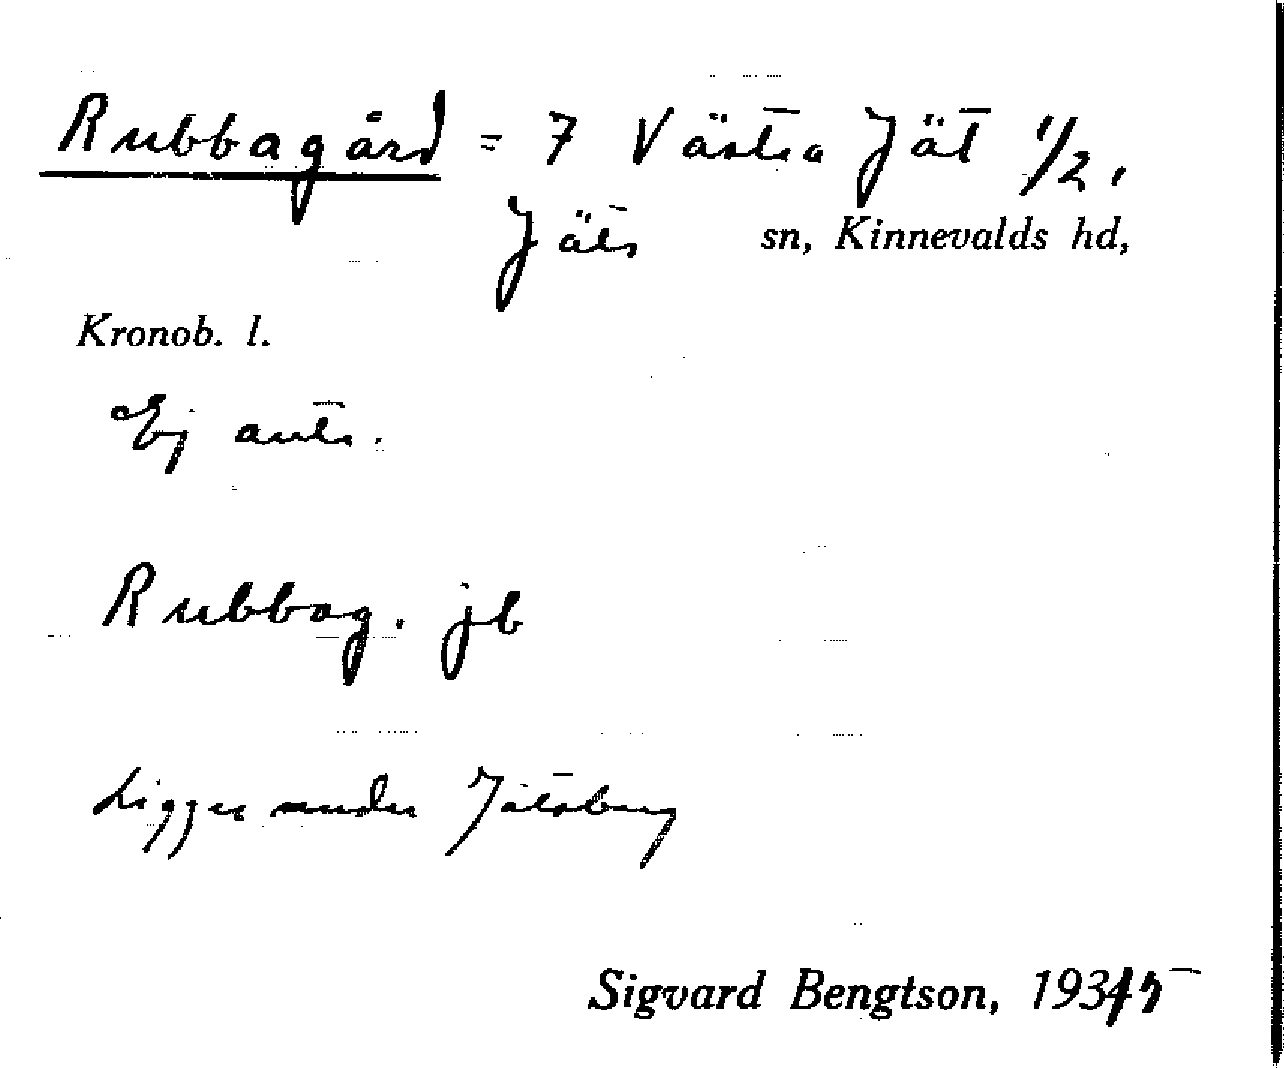 Rubbagård = 7 Västra Jät 1/2,
Jäts sn, Kinnevalds hd,
Kronob. l.
Ej antr.
Rubbag. jb
Ligger under Jätsberg
Sigvard Bengtson, 1935